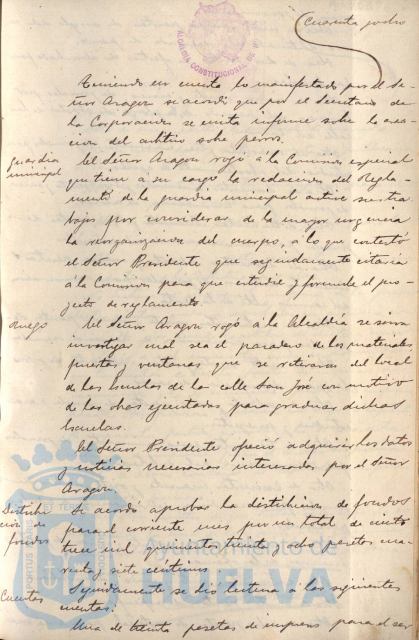 Cuarenta y ocho
ALCALDIA CONSTITUCIONAL DE
Teniendo en cuenta lo manifestado por el Se-
ñor Aragon se acordó que por el Secretario de
la Corporacion se emita informe sobre la crea-
cion del arbitrio sobre perros.
Guardia
municipal
El Señor Aragon rogó á la Comision especial
que tiene á su cargo la redaccion del Regla-
mento de la guardia municipal active sus tra-
bajos por considerar de la mayor urgencia
la reorganizacion del cuerpo, a lo que contestó
el Señor Presidente que seguidamente citaria
á la Comision para que estudie y formule el pro-
yecto de reglamento.
Ruego
El Señor Aragon rogó á la Alcaldía se sirva
investigar cual sea el paradero de los materiales
puertas y ventanas que se retiraron del local
de las Escuelas de la calle San José con motivo
de las obras ejecutadas para graduar dichas
Escuelas.
El Señor Presidente ofreció adquirir los datos
y noticias necesarias interesadas por el Señor
Aragon.
Distribu-
cion de
fondos
Se acordó aprobar la distribucion de fondos
para el corriente mes por un total de ciento
trece mil quinientas treinta y ocho pesetas cua-
renta y siete céntimos
Cuentas
Seguidamente se dió lectura á las siguientes
cuentas:
Una de treinta pesetas de impresos para el ser-
Ayuntamiento de
HUELVA